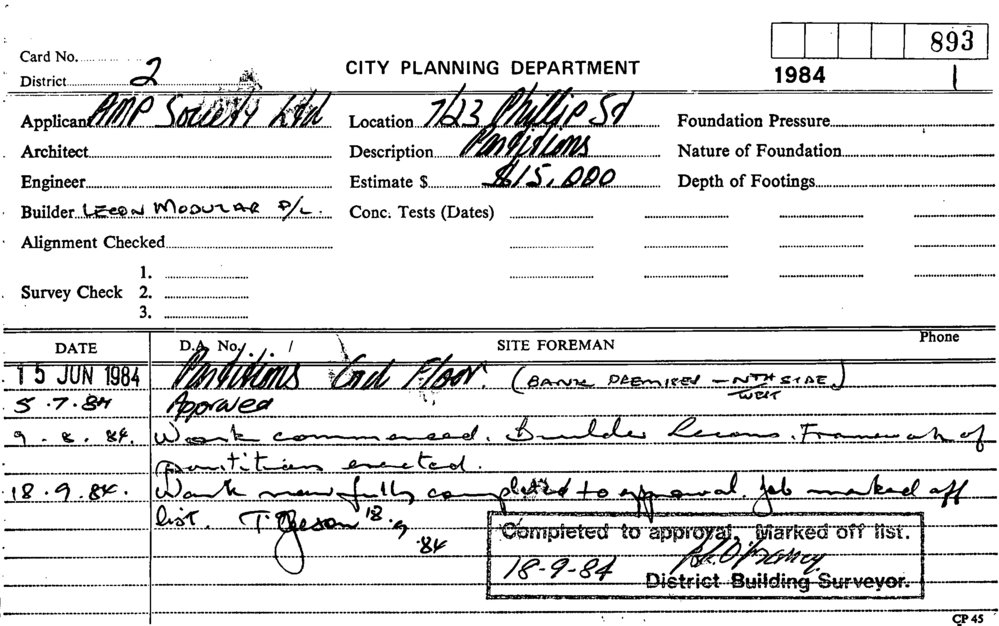 Card No.
District 2
CITY PLANNING DEPARTMENT
893
1984 1
Applicant AMP Society Ltd
Location 7/23 Phillip St
Foundation Pressure
Architect
Description Partitions
Nature of Foundation
Engineer
Estimate $ $15,000
Depth of Footings
Builder LECON MODULAR P/L.
Conc. Tests (Dates)
Alignment Checked
Survey Check 1.
2.
3.
DATE D.A. No. / SITE FOREMAN Phone
15 JUN 1984 Partitions Gnd Floor. (BANK PREMISES - NTH SIDE)
WEST
5.7.84 Approved
9.8.84. Work commenced. Builder Lecons. Framework of
partitions erected.
18.9.84. Work now fully completed to approval. Job marked off
list. 18.9
.84
Completed to approval. Marked off list.
18-9-84
District Building Surveyor.
CP 45